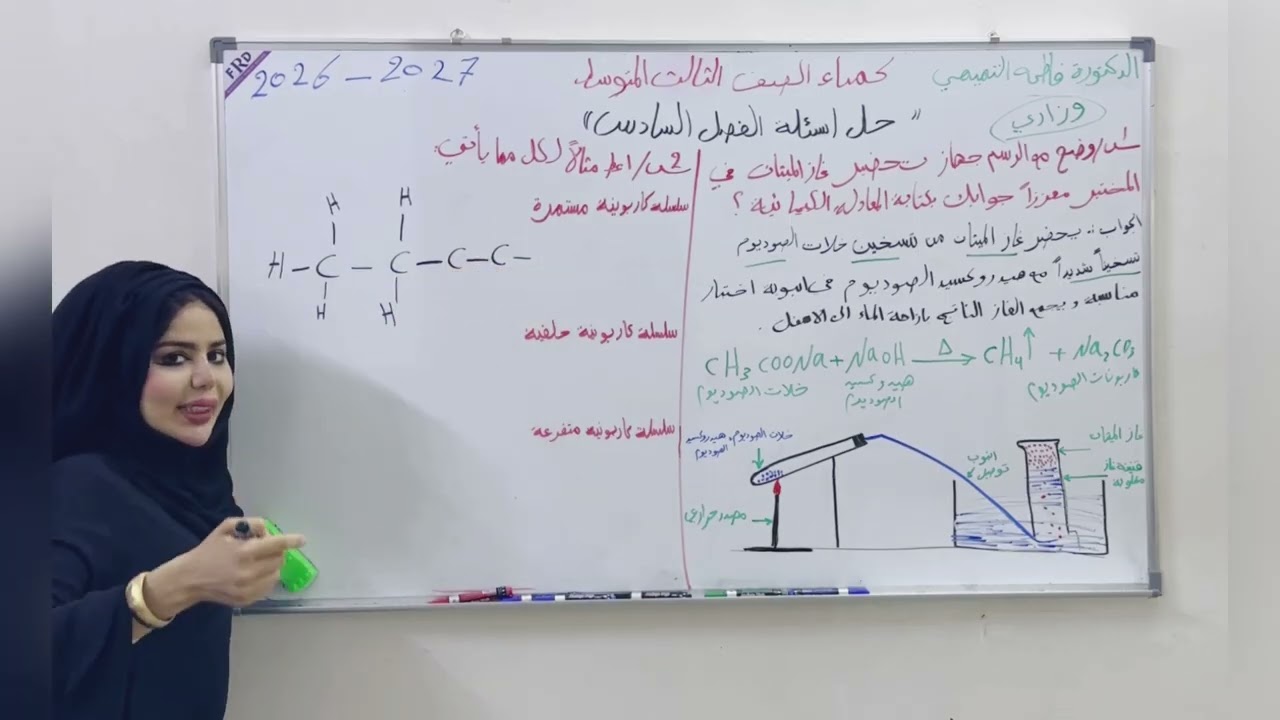 الدكتورة فاطمة التميمي
كيمياء الصف الثالث المتوسط
2026 - 2027
FRD
وزاري
"حل اسئلة الفصل السادس"
س1/وضح مع الرسم جهاز تحضير غاز الميثان في
المختبر معززاً جوابك بكتابة المعادلة الكيميائية ؟
الجواب :. يحضر غاز الميثان من تسخين خلات الصوديوم
تسخيناً شديداً مع هيدروكسيد الصوديوم في انبوبة اختبار
مناسبة و يجمع الغاز الناتج بازاحة الماء الى الاسفل .
CH3COONa + NaOH Δ→ CH4↑ + Na2CO3
خلات الصوديوم
هيدروكسيد
الصوديوم
كاربونات الصوديوم
خلات الصوديوم و هيدروكسيد
الصوديوم
مصدر حراري
انبوب
توصيل
غاز الميثان
قنينة غاز
مقلوبة
س2/ اعط مثالاً لكل مما يأتي:
سلسلة كاربونية مستمرة
H H
H - C - C - C - C -
H H
سلسلة كاربونية حلقية
سلسلة كاربونية متفرعة